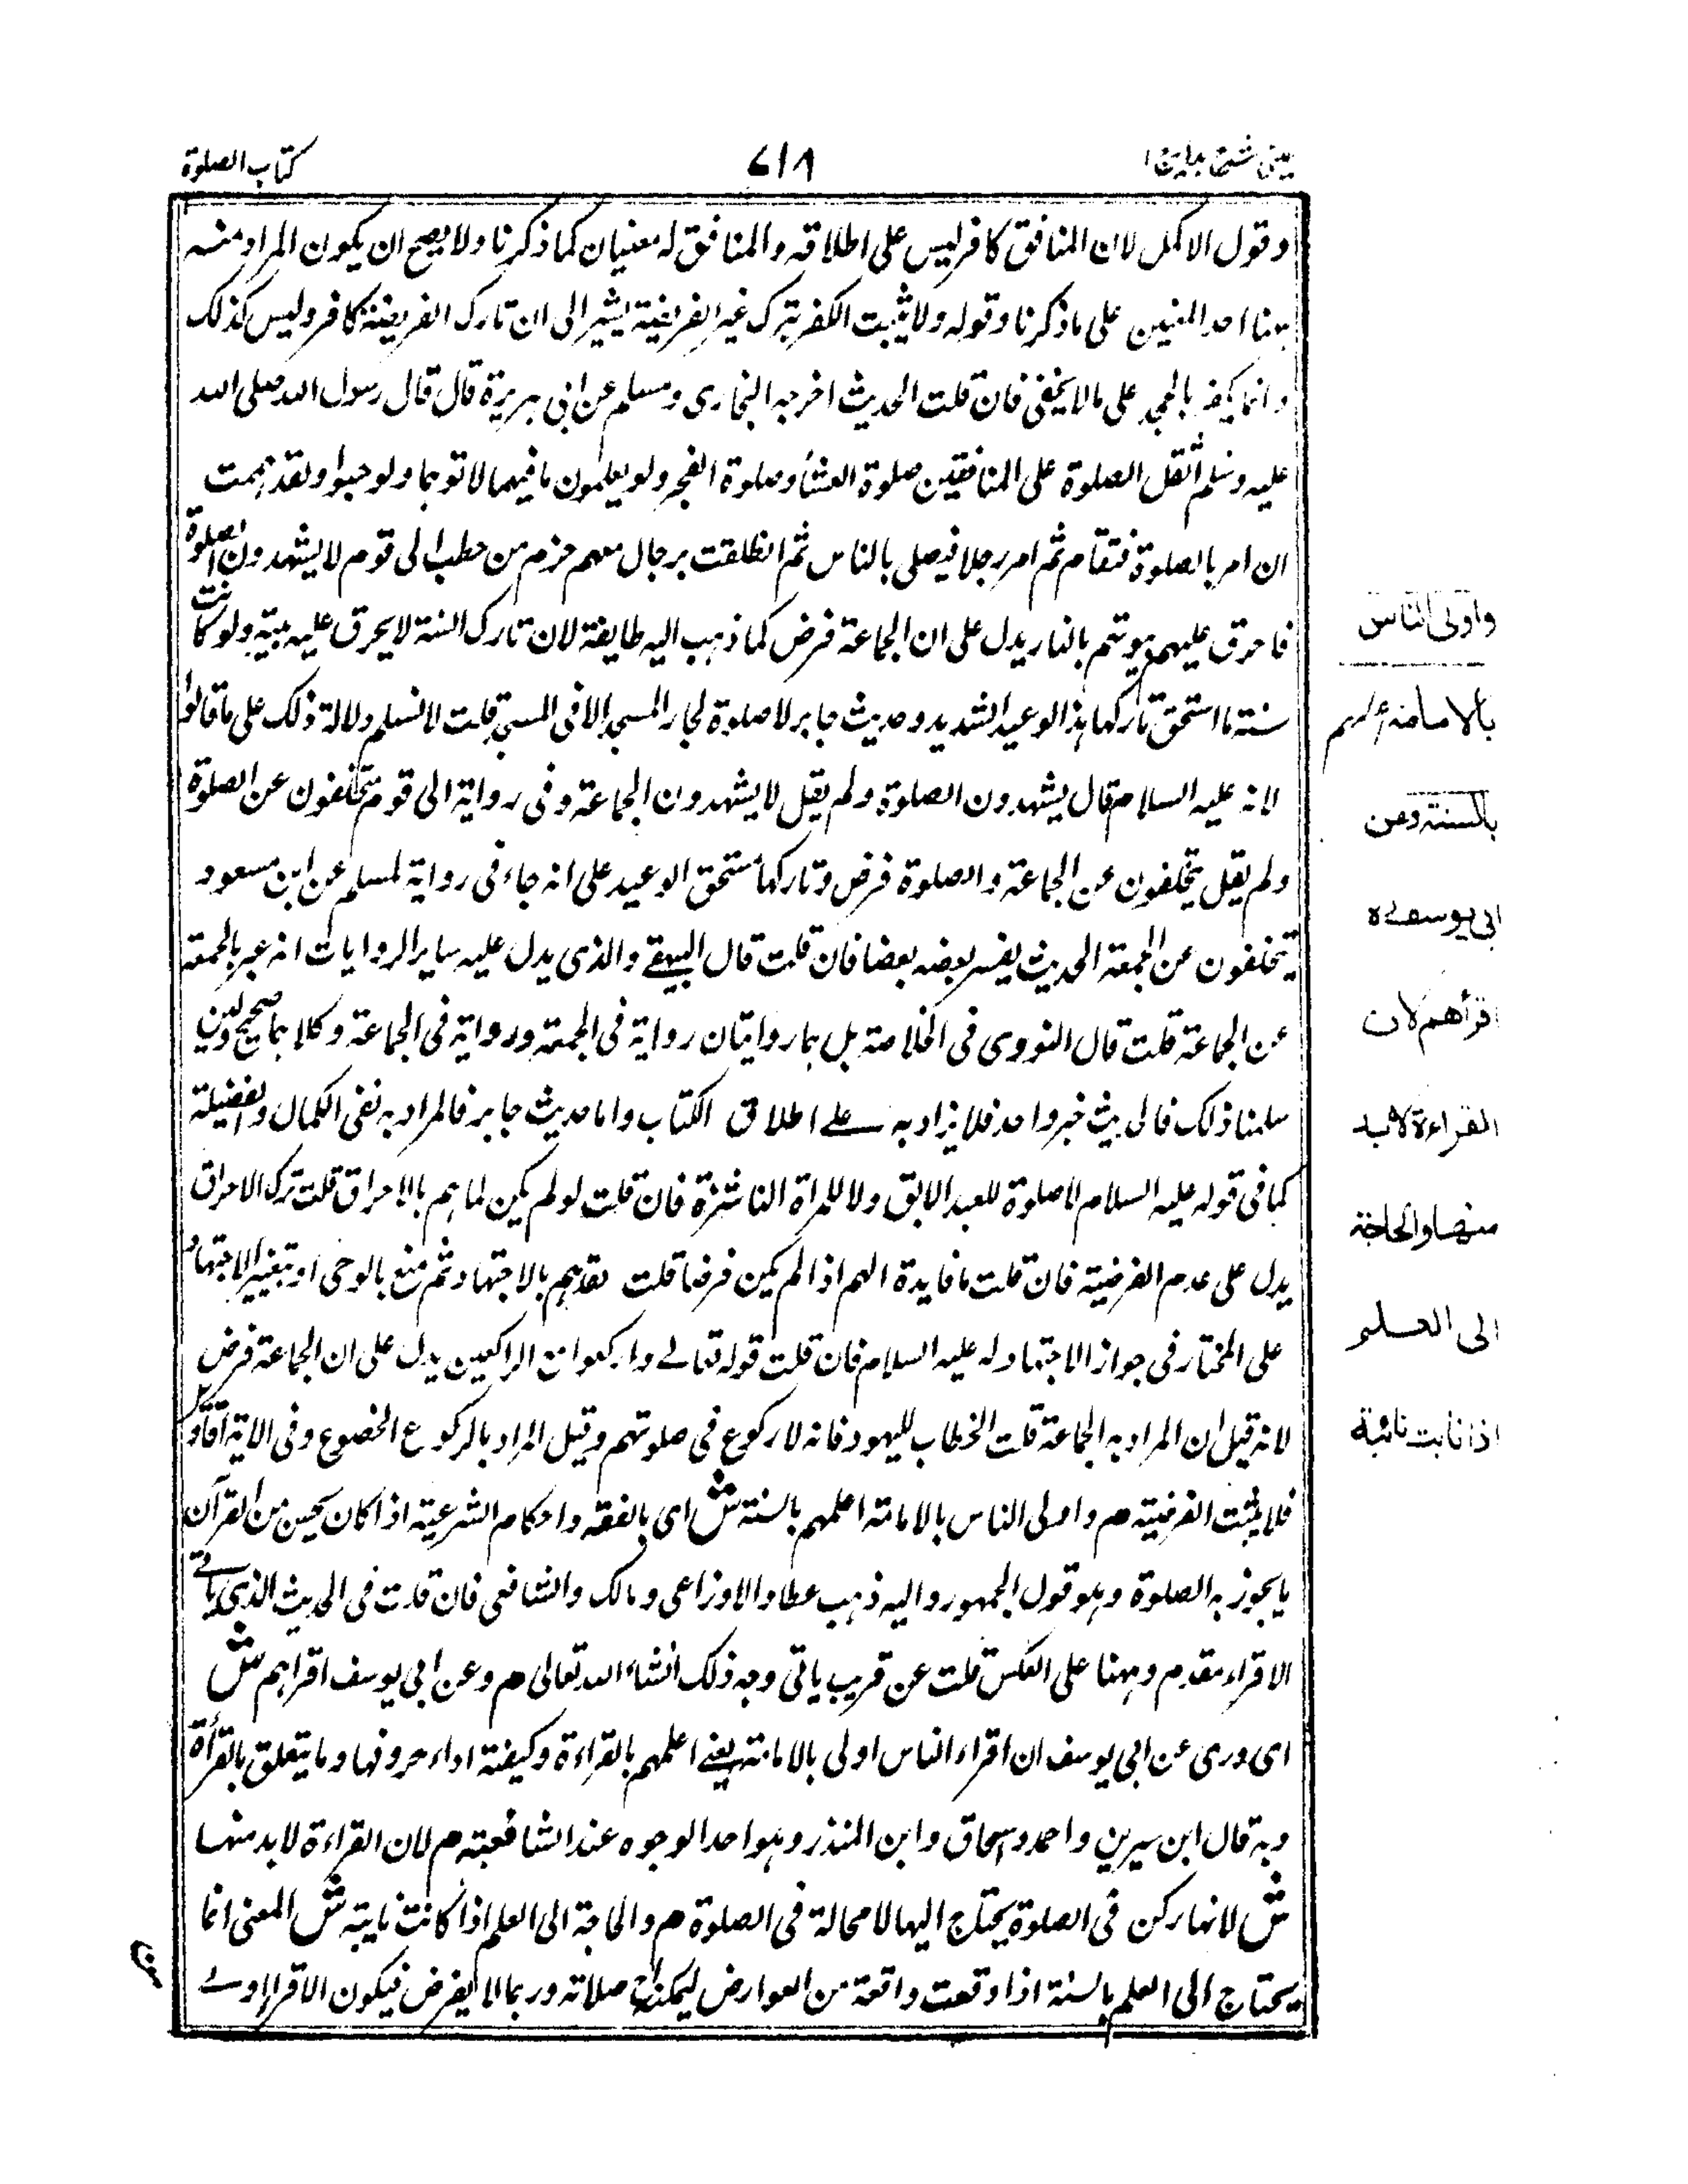 عینی شرح ہدایۃ ١
٧١٨
کتاب الصلوة
وقول الاکمل لان المنافق کافر لیس علی اطلاقہ والمنافق لہ معنیان کما ذکرنا ولا یصح ان یکون المراد منہ
ہہنا احد المعنیین علی ماذکرنا وقولہ ولا یثبت الکفر بترک غیر الفریضۃ یشیر الی ان تارک الفریضۃ کافر ولیس کذلک
وانما یکفر بالجحد علی مالا یخفی فان قلت الحدیث اخرجہ البخاری ومسلم عن ابی ہریرۃ قال قال رسول اللہ صلی اللہ
علیہ وسلم اثقل الصلوة علی المنافقین صلوة العشاء وصلوة الفجر ولو یعلمون ما فیہما لاتوہما ولو حبوا ولقد ہممت
ان امر بالصلوة فتقام ثم امر رجلا فیصلی بالناس ثم انطلقت برجال معہم حزم من حطب الی قوم لا یشہدون الصلوة
فاحرق علیہم بیوتہم بالنار یدل علی ان الجماعۃ فرض کما ذہب الیہ طایفۃ لان تارک السنۃ لا یحرق علیہ بیتہ ولو کانت
سنۃ ما استحق تارکہا ہذا الوعید الشدید وحدیث جابر لا صلوة لجار المسجد الا فی المسجد قلت لا نسلم دلالۃ ذلک علی ما قالوا
لانہ علیہ السلام قال یشہدون الصلوة ولم یقل لا یشہدون الجماعۃ وفی روایۃ الی قوم یتخلفون عن الصلوة
ولم یقل یتخلفون عن الجماعۃ والصلوة فرض وتارکہا مستحق الوعید علی انہ جاء فی روایۃ لمسلم عن ابن مسعود
یتخلفون عن الجمعۃ الحدیث یفسر بعضہ بعضا فان قلت قال البیہقے والذی یدل علیہ سایر الروایات انہ عبر بالجمعۃ
عن الجماعۃ قلت قال النووی فی الخلاصۃ بل ہما روایتان روایۃ فی الجمعۃ وروایۃ فی الجماعۃ وکلاہما صحیح ولئن
سلمنا ذلک فالحدیث خبر واحد فلا یزاد بہ علے اطلاق الکتاب واما حدیث جابر فالمراد بہ نفی الکمال والفضیلۃ
کما فی قولہ علیہ السلام لا صلوة للعبد الابق ولا للمراۃ الناشزۃ فان قلت لو لم یکن لما ہم بالاحراق قلت ترک الاحراق
یدل علی عدم الفرضیۃ فان قلت ما فایدۃ الہم اذا لم یکن فرضا قلت تقدہم بالاجتہاد ثم منع بالوحی او بتغییر الاجتہاد
علی المختار فی جواز الاجتہاد لہ علیہ السلام فان قلت قولہ تعالے وارکعوا مع الراکعین یدل علی ان الجماعۃ فرض
لانہ قیل ان المراد بہ الجماعۃ قلت الخطاب للیہود فانہ لا رکوع فی صلوتہم وقیل المراد بالرکوع الخضوع وفی الایۃ اقاویل
فلا یثبت الفرضیۃ م واولی الناس بالامامۃ اعلمہم بالسنۃ ش ای بالفقہ واحکام الشرعیۃ اذا کان یحسن من القرآن
ما یجوز بہ الصلوة وہو قول الجمہور والیہ ذہب عطا والاوزاعی ومالک والشافعی فان قلت فی الحدیث الذی یاتے
الاقراء مقدم وہہنا علی العکس قلت عن قریب یاتی وجہ ذلک انشاء اللہ تعالی م وعن ابی یوسف اقراہم ش
ای وروی عن ابی یوسف ان اقراء الناس اولی بالامامۃ یعنے اعلمہم بالقراءۃ وکیفۃ اداء حروفہا وما یتعلق بالقراءۃ
وبہ قال ابن سیرین واحمد واسحاق وابن المنذر وہو احد الوجوہ عند الشافعیۃ م لان القراءۃ لا بد منہا
ش لانہا رکن فی الصلوة یحتاج الیہا لا محالۃ فی الصلوة م والحاجۃ الی العلم اذا کانت نایبۃ ش المعنی انما
یحتاج الی العلم بالسنۃ اذا وقعت واقعۃ من العوارض لیمکنہ صلاتہ وربما لا یفرض فیکون الاقراء اولے
واولی الناس
بالامامۃ اعلمہم
بالسنۃ وعن
ابی یوسف رہ
اقرأهم لان
القراءۃ لابد
منها والحاجۃ
الی العلم
اذا نابت نائبۃ